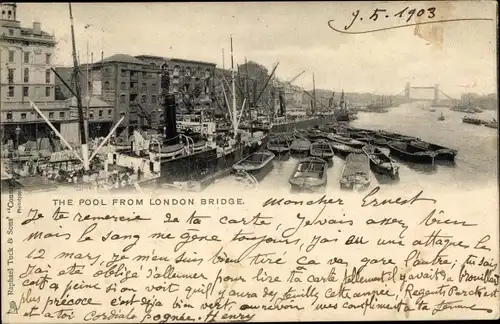 9.5.1903
THE POOL FROM LONDON BRIDGE.
Raphael Tuck & Sons' "County" Postcard
mon cher Ernest
Je te remercie de ta carte, j'vais assez bien
mais le sang me gêne toujours, j'ai eu une attaque le
12 mars, je me suis bien tiré ça va, gare l'autre; tu sais
j'ai été obligé d'essuyer pour lire ta carte tellement il y avait de brouillard
c'est à peine si on voit qu'il y aura des feuilles cette année, Regents Park c'est
plus précoce c'est déjà bien vert au revoir mes compliments à ta femme
et à toi Cordiale poignée. Henry